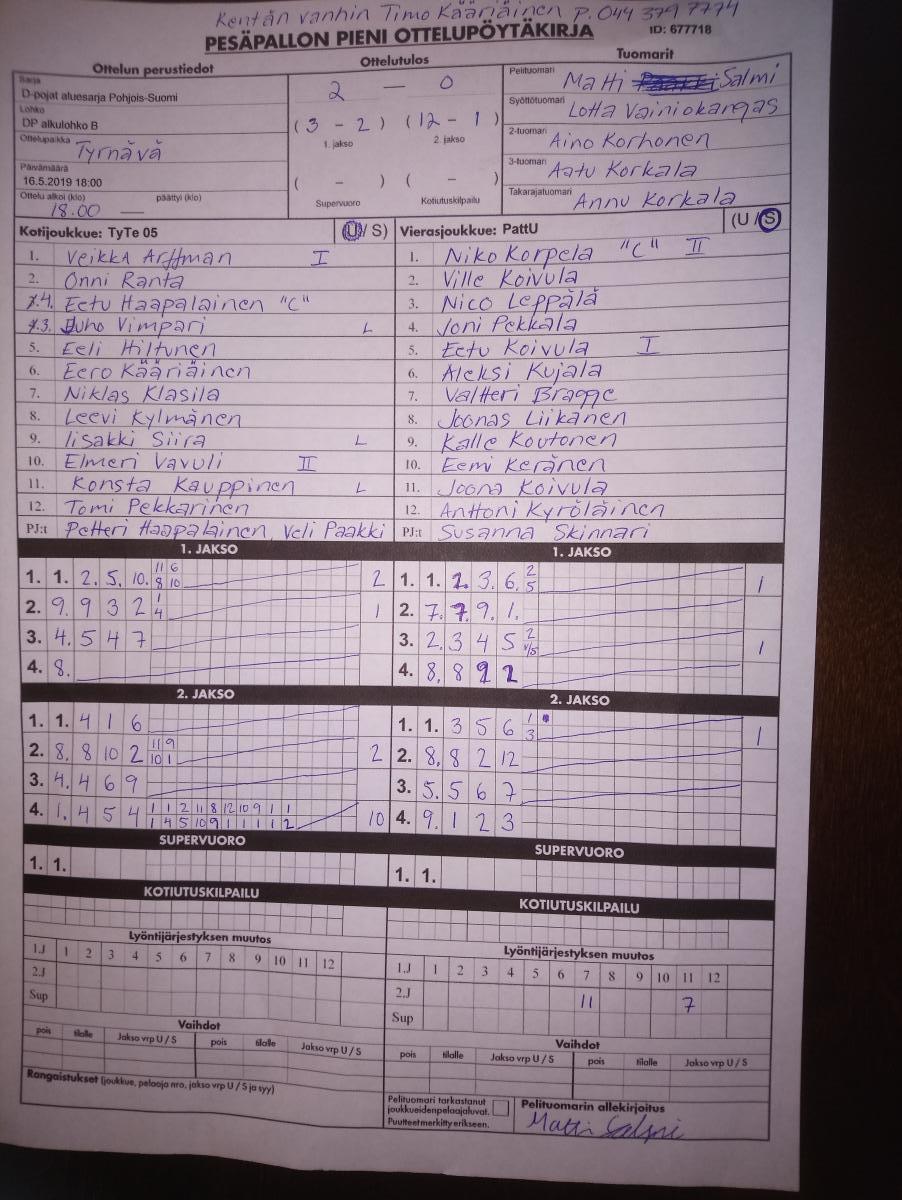 Kentän vanhin Timo Kääriäinen P. 044 379 7774
PESÄPALLON PIENI OTTELUPÖYTÄKIRJA
ID: 677718
Ottelun perustiedot
Sarja
D-pojat aluesarja Pohjois-Suomi
Lohko
DP alkulohko B
Ottelupaikka Tyrnävä
Päivämäärä
16.5.2019 18:00
Ottelu alkoi (klo) päättyi (klo)
18.00 —
Ottelutulos
2 — 0
(3 - 2) (12 - 1)
1. jakso 2. jakso
( - ) ( - )
Supervuoro Kotiutuskilpailu
Tuomarit
Pelituomari Matti Salmi
Syöttötuomari Lotta Vainiokangas
2-tuomari Aino Korhonen
3-tuomari Aatu Korkala
Takarajatuomari Annu Korkala
Kotijoukkue: TyTe 05 (U / S)
1. Veikka Arffman I
2. Onni Ranta
4. Eetu Haapalainen "C"
3. Juho Vimpari L
5. Eeli Hiltunen
6. Eero Kääriäinen
7. Niklas Klasila
8. Leevi Kylmänen
9. Iisakki Siira L
10. Elmeri Vavuli II
11. Konsta Kauppinen L
12. Tomi Pekkarinen
PJ:t Petteri Haapalainen Veli Paakki
Vierasjoukkue: PattU (U / S)
1. Niko Korpela "C" II
2. Ville Koivula
3. Nico Leppälä
4. Joni Pekkala
5. Eetu Koivula I
6. Aleksi Kujala
7. Valtteri Bragge
8. Joonas Liikanen
9. Kalle Koutonen
10. Eemi Keränen
11. Joona Koivula
12. Anttoni Kyröläinen
PJ:t Susanna Skinnari
1. JAKSO
1. 1. 2. 5. 10. 11 6 2
8 10
2. 9. 9 3 2 1 1
4
3. 4. 5 4 7
4. 8.
2. JAKSO
1. 1. 4 1 6
2. 8. 8 10 2 11 9 2
10 1
3. 4. 4 6 9
4. 1. 4 5 4 1 1 2 11 8 12 10 9 1 1 10
1 4 5 10 9 1 1 1 1 2
SUPERVUORO
1. 1.
KOTIUTUSKILPAILU
Lyöntijärjestyksen muutos
1.J 1 2 3 4 5 6 7 8 9 10 11 12
2.J
Sup
Vaihdot
pois tilalle Jakso vrp U / S pois tilalle Jakso vrp U / S
Rangaistukset (joukkue, pelaaja nro, jakso vrp U / S ja syy)
1. JAKSO
1. 1. 2. 3. 6. 2 1
5
2. 7. 7. 9. 1.
3. 2. 3 4 5 2 1
4/5
4. 8. 8 9 2
2. JAKSO
1. 1. 3 5 6 1 1
3
2. 8. 8 2 12
3. 5. 5 6 7
4. 9. 1 2 3
SUPERVUORO
1. 1.
KOTIUTUSKILPAILU
Lyöntijärjestyksen muutos
1.J 1 2 3 4 5 6 7 8 9 10 11 12
2.J 11 7
Sup
Vaihdot
pois tilalle Jakso vrp U / S pois tilalle Jakso vrp U / S
Pelituomari tarkastanut
joukkueidenpelaajaluvat.
Puutteetmerkitty erikseen.
Pelituomarin allekirjoitus
Matti Salmi